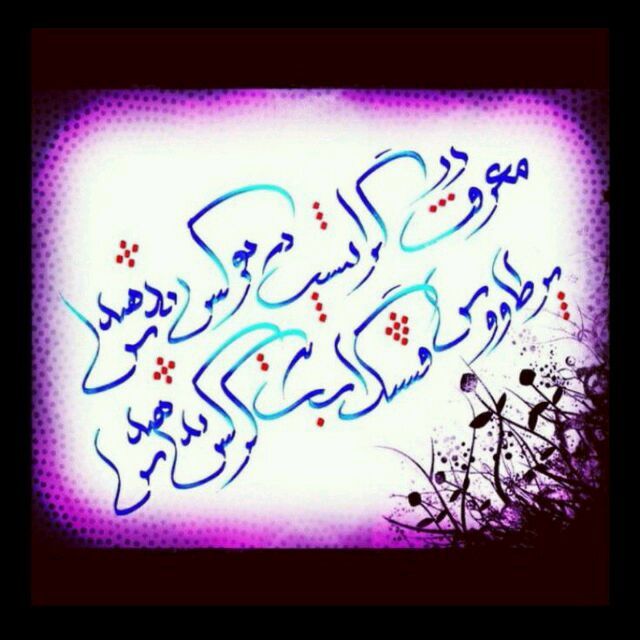 معرفت در گرانیست به هر کس ندهندش
پر طاووس قشنگ است به کرکس ندهندش